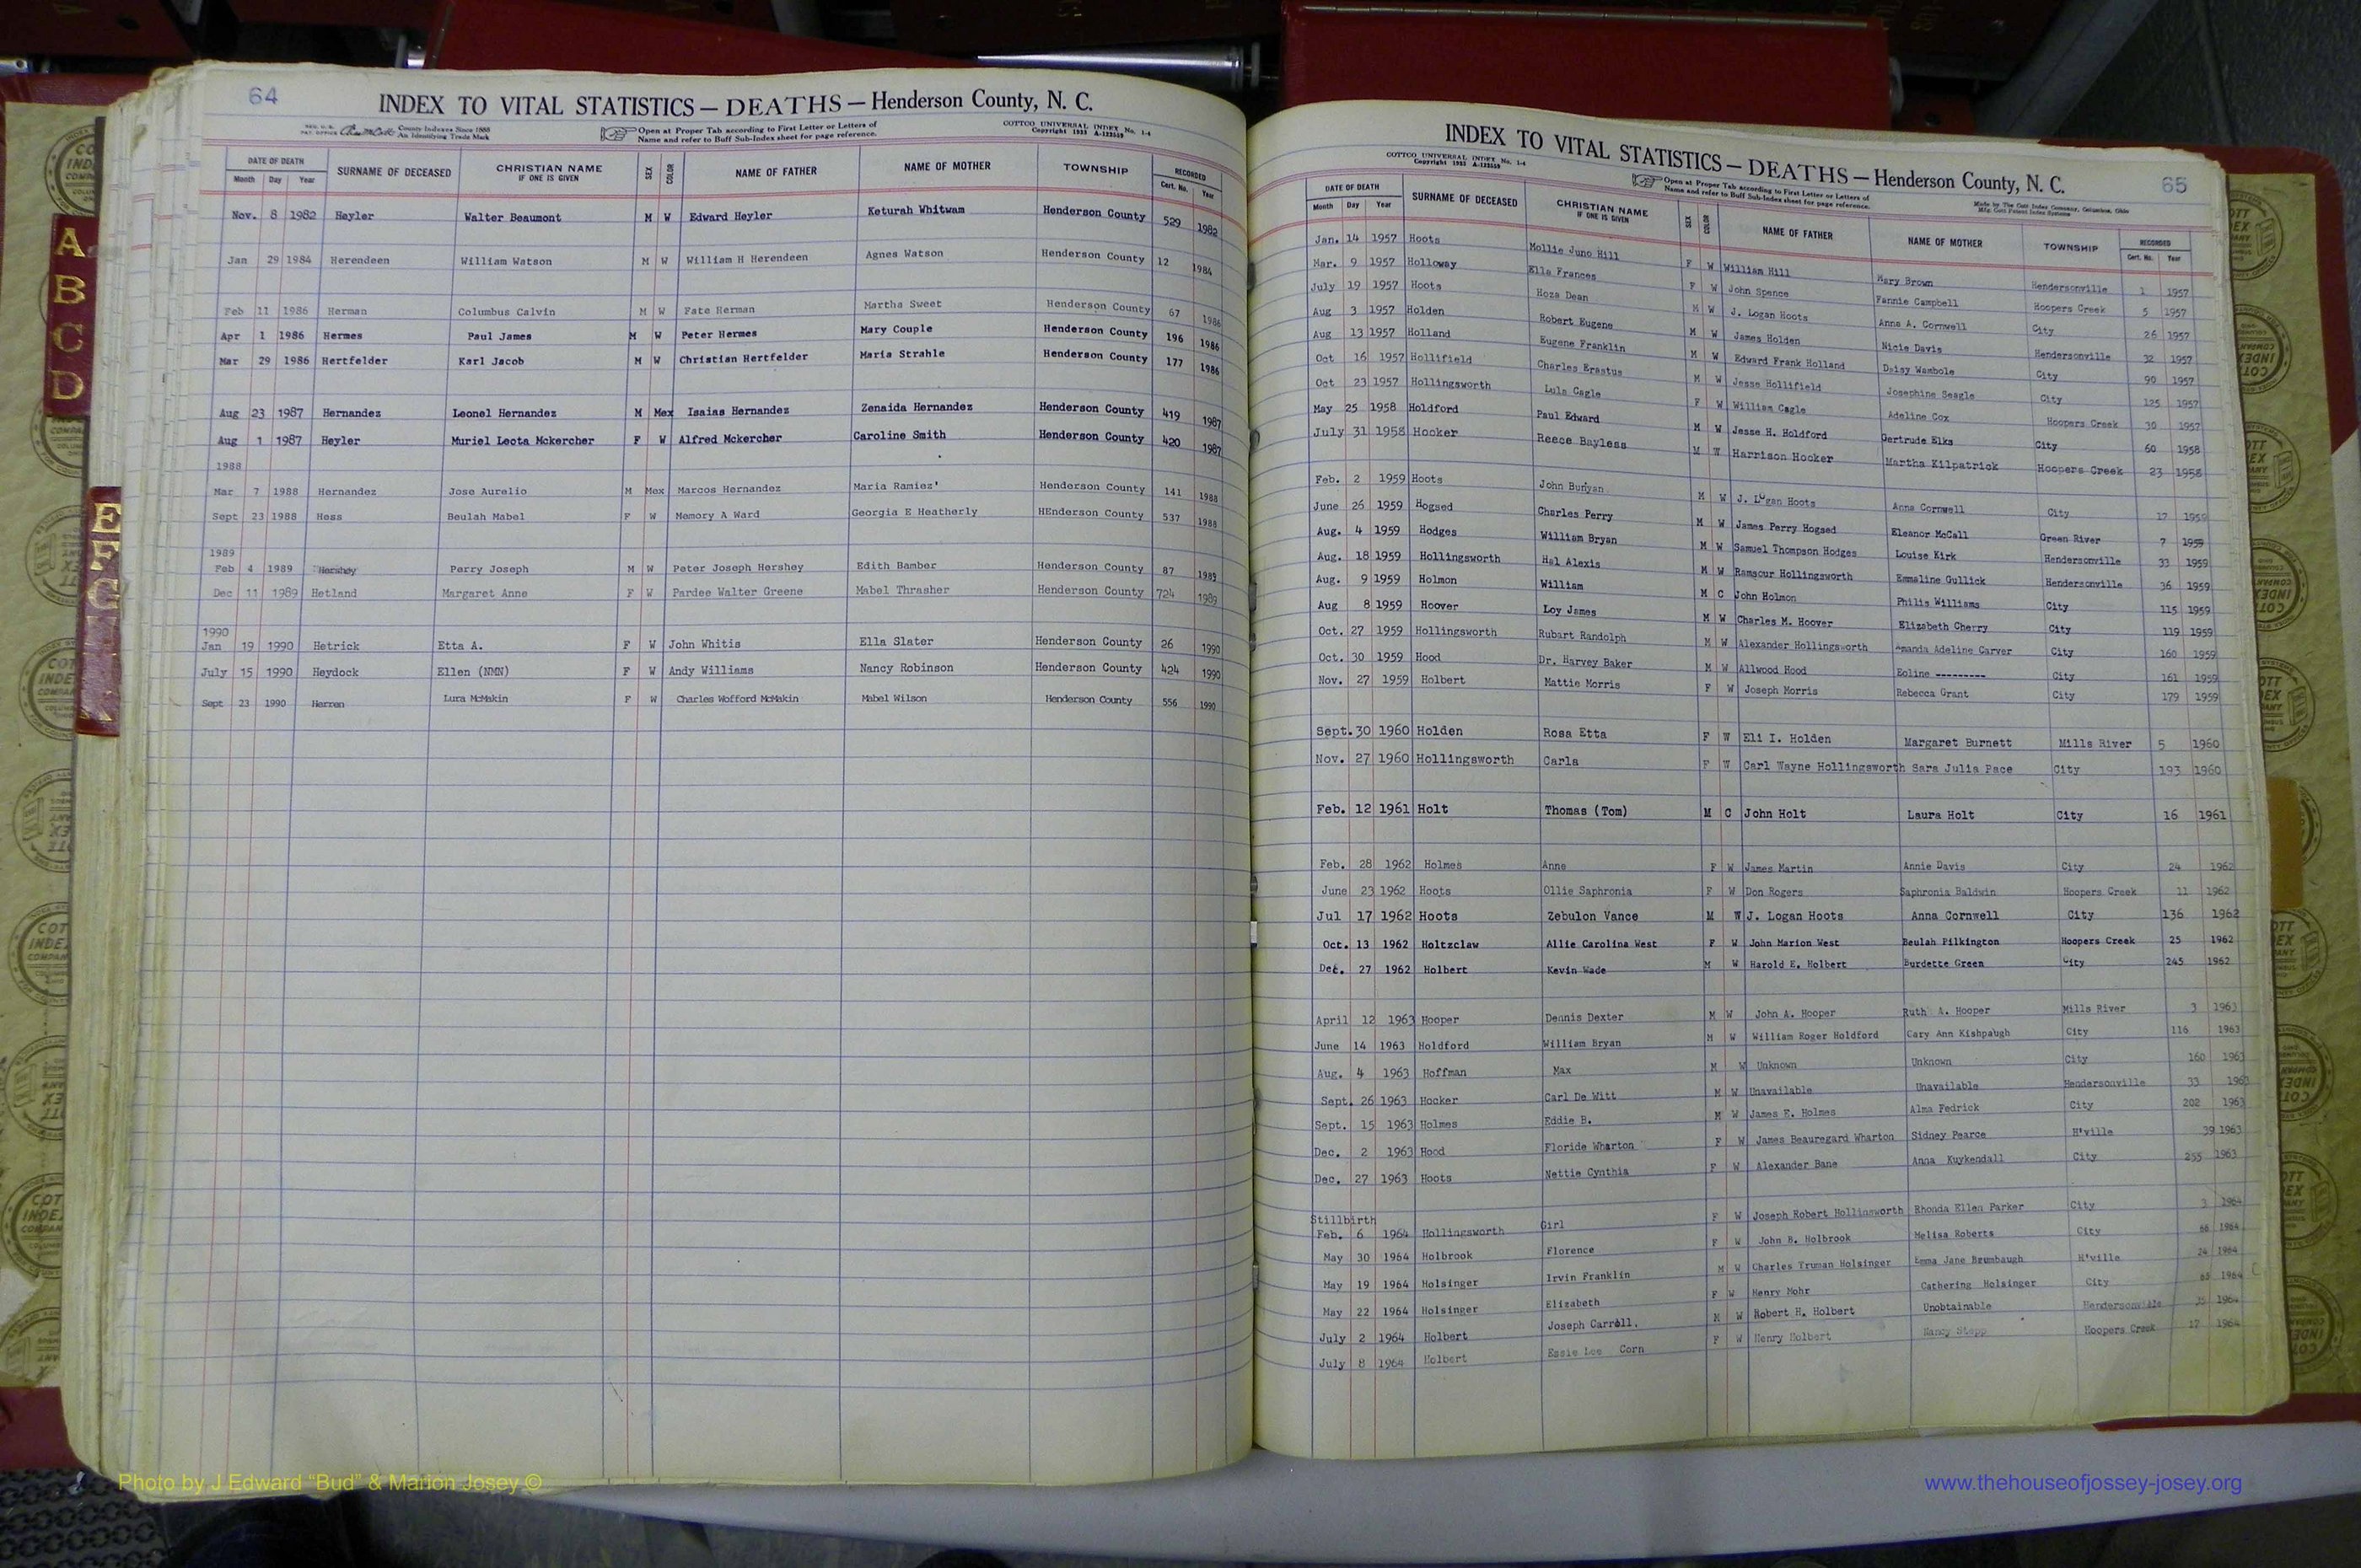 64
INDEX TO VITAL STATISTICS — DEATHS — Henderson County, N. C.
County Indexes Since 1888
An Identifying Trade Mark
Open at Proper Tab according to First Letter or Letters of
Name and refer to Buff Sub-Index sheet for page reference.
COTTCO UNIVERSAL INDEX No. 1-4
Copyright 1933 A-123559
DATE OF DEATH SURNAME OF DECEASED CHRISTIAN NAME SEX COLOR NAME OF FATHER NAME OF MOTHER TOWNSHIP RECORDED
Month Day Year IF ONE IS GIVEN Cert. No. Year
Nov. 8 1982 Heyler Walter Beaumont M W Edward Heyler Keturah Whitwam Henderson County 529 1982
Jan 29 1984 Herendeen William Watson M W William H Herendeen Agnes Watson Henderson County 12 1984
Feb 11 1986 Herman Columbus Calvin M W Fate Herman Martha Sweet Henderson County 67 1986
Apr 1 1986 Hermes Paul James M W Peter Hermes Mary Couple Henderson County 196 1986
Mar 29 1986 Hertfelder Karl Jacob M W Christian Hertfelder Maria Strahle Henderson County 177 1986
Aug 23 1987 Hernandez Leonel Hernandez M Mex Isaias Hernandez Zenaida Hernandez Henderson County 419 1987
Aug 1 1987 Heyler Muriel Leota Mckercher F W Alfred Mckercher Caroline Smith Henderson County 420 1987
1988
Mar 7 1988 Hernandez Jose Aurelio M Mex Marcos Hernandez Maria Ramiez' Henderson County 141 1988
Sept 23 1988 Hess Beulah Mabel F W Memory A Ward Georgia E Heatherly HEnderson County 537 1988
1989
Feb 4 1989 Hershey Perry Joseph M W Peter Joseph Hershey Edith Bamber Henderson County 87 1989
Dec 11 1989 Hetland Margaret Anne F W Pardee Walter Greene Mabel Thrasher Henderson County 724 1989
1990
Jan 19 1990 Hetrick Etta A. F W John Whitis Ella Slater Henderson County 26 1990
July 15 1990 Heydock Ellen (NMN) F W Andy Williams Nancy Robinson Henderson County 424 1990
Sept 23 1990 Herren Lura McMakin F W Charles Wofford McMakin Mabel Wilson Henderson County 556 1990
INDEX TO VITAL STATISTICS — DEATHS — Henderson County, N. C.
65
COTTCO UNIVERSAL INDEX No. 1-4
Copyright 1933 A-123559
Open at Proper Tab according to First Letter or Letters of
Name and refer to Buff Sub-Index sheet for page reference.
Made by The Cott Index Company, Columbus, Ohio
DATE OF DEATH SURNAME OF DECEASED CHRISTIAN NAME SEX COLOR NAME OF FATHER NAME OF MOTHER TOWNSHIP RECORDED
Month Day Year IF ONE IS GIVEN Cert. No. Year
Jan. 14 1957 Hoots Mollie Juno Hill F W William Hill Mary Brown Hendersonville 1 1957
Mar. 9 1957 Holloway Ella Frances F W John Spence Fannie Campbell Hoopers Creek 5 1957
July 19 1957 Hoots Hoza Dean M W J. Logan Hoots Anna A. Cornwell City 26 1957
Aug 3 1957 Holden Robert Eugene M W James Holden Nicie Davis Hendersonville 32 1957
Aug 13 1957 Holland Eugene Franklin M W Edward Frank Holland Daisy Wambole City 90 1957
Oct 16 1957 Hollifield Charles Erastus M W Jesse Hollifield Josephine Seagle City 125 1957
Oct 23 1957 Hollingsworth Lula Cagle F W William Cagle Adeline Cox Hoopers Creek 30 1957
May 25 1958 Holdford Paul Edward M W Jesse H. Holdford Gertrude Elks City 60 1958
July 31 1958 Hooker Reece Bayless M W Harrison Hooker Martha Kilpatrick Hoopers Creek 23 1958
Feb. 2 1959 Hoots John Bunyan M W J. Logan Hoots Anna Cornwell City 12 1959
June 26 1959 Hogsed Charles Perry M W James Perry Hogsed Eleanor McCall Green River 7 1959
Aug. 4 1959 Hodges William Bryan M W Samuel Thompson Hodges Louise Kirk Hendersonville 33 1959
Aug. 18 1959 Hollingsworth Hal Alexis M W Ramsour Hollingsworth Emmaline Gullick Hendersonville 36 1959
Aug. 9 1959 Holmon William M C John Holmon Philis Williams City 115 1959
Aug 8 1959 Hoover Loy James M W Charles M. Hoover Elizabeth Cherry City 119 1959
Oct. 27 1959 Hollingsworth Rubart Randolph M W Alexander Hollingsworth Amanda Adeline Carver City 160 1959
Oct. 30 1959 Hood Dr. Harvey Baker M W Allwood Hood Eoline --------- City 161 1959
Nov. 27 1959 Holbert Mattie Morris F W Joseph Morris Rebecca Grant City 179 1959
Sept. 30 1960 Holden Rosa Etta F W Eli I. Holden Margaret Burnett Mills River 5 1960
Nov. 27 1960 Hollingsworth Carla F W Carl Wayne Hollingsworth Sara Julia Pace City 193 1960
Feb. 12 1961 Holt Thomas (Tom) M C John Holt Laura Holt City 16 1961
Feb. 28 1962 Holmes Anne F W James Martin Annie Davis City 24 1962
June 23 1962 Hoots Ollie Saphronia F W Don Rogers Saphronia Baldwin Hoopers Creek 11 1962
Jul 17 1962 Hoots Zebulon Vance M W J. Logan Hoots Anna Cornwell City 136 1962
Oct. 13 1962 Holtzclaw Allie Carolina West F W John Marion West Beulah Pilkington Hoopers Creek 25 1962
Dec. 27 1962 Holbert Kevin Wade M W Harold E. Holbert Burdette Green City 245 1962
April 12 1963 Hooper Dennis Dexter M W John A. Hooper Ruth A. Hooper Mills River 3 1963
June 14 1963 Holdford William Bryan M W William Roger Holdford Cary Ann Kishpaugh City 116 1963
Aug. 4 1963 Hoffman Max M W Unknown Unknown City 160 1963
Sept. 26 1963 Hooker Carl De Witt M W Unavailable Unavailable Hendersonville 33 1963
Sept. 15 1963 Holmes Eddie B. M W James E. Holmes Alma Fedrick City 202 1963
Dec. 2 1963 Hood Floride Wharton F W James Beauregard Wharton Sidney Pearce H'ville 39 1963
Dec. 27 1963 Hoots Nettie Cynthia F W Alexander Bane Anna Kuykendall City 255 1963
Stillbirth
Feb. 6 1964 Hollingsworth Girl F W Joseph Robert Hollinsworth Rhonda Ellen Parker City 3 1964
May 30 1964 Holbrook Florence F W John B. Holbrook Melisa Roberts City 66 1964
May 19 1964 Holsinger Irvin Franklin M W Charles Truman Holsinger Emma Jane Brumbaugh H'ville 24 1964
May 22 1964 Holsinger Elizabeth F W Henry Mohr Cathering Holsinger City 65 1964
July 2 1964 Holbert Joseph Carroll. M W Robert H. Holbert Unobtainable Hendersonville 35 1964
July 8 1964 Holbert Essie Lee Corn F W Henry Holbert Nancy Stepp Hoopers Creek 17 1964
A
B
C
D
E
F
G
Photo by J Edward “Bud” & Marion Josey ©
www.thehouseofjossey-josey.org